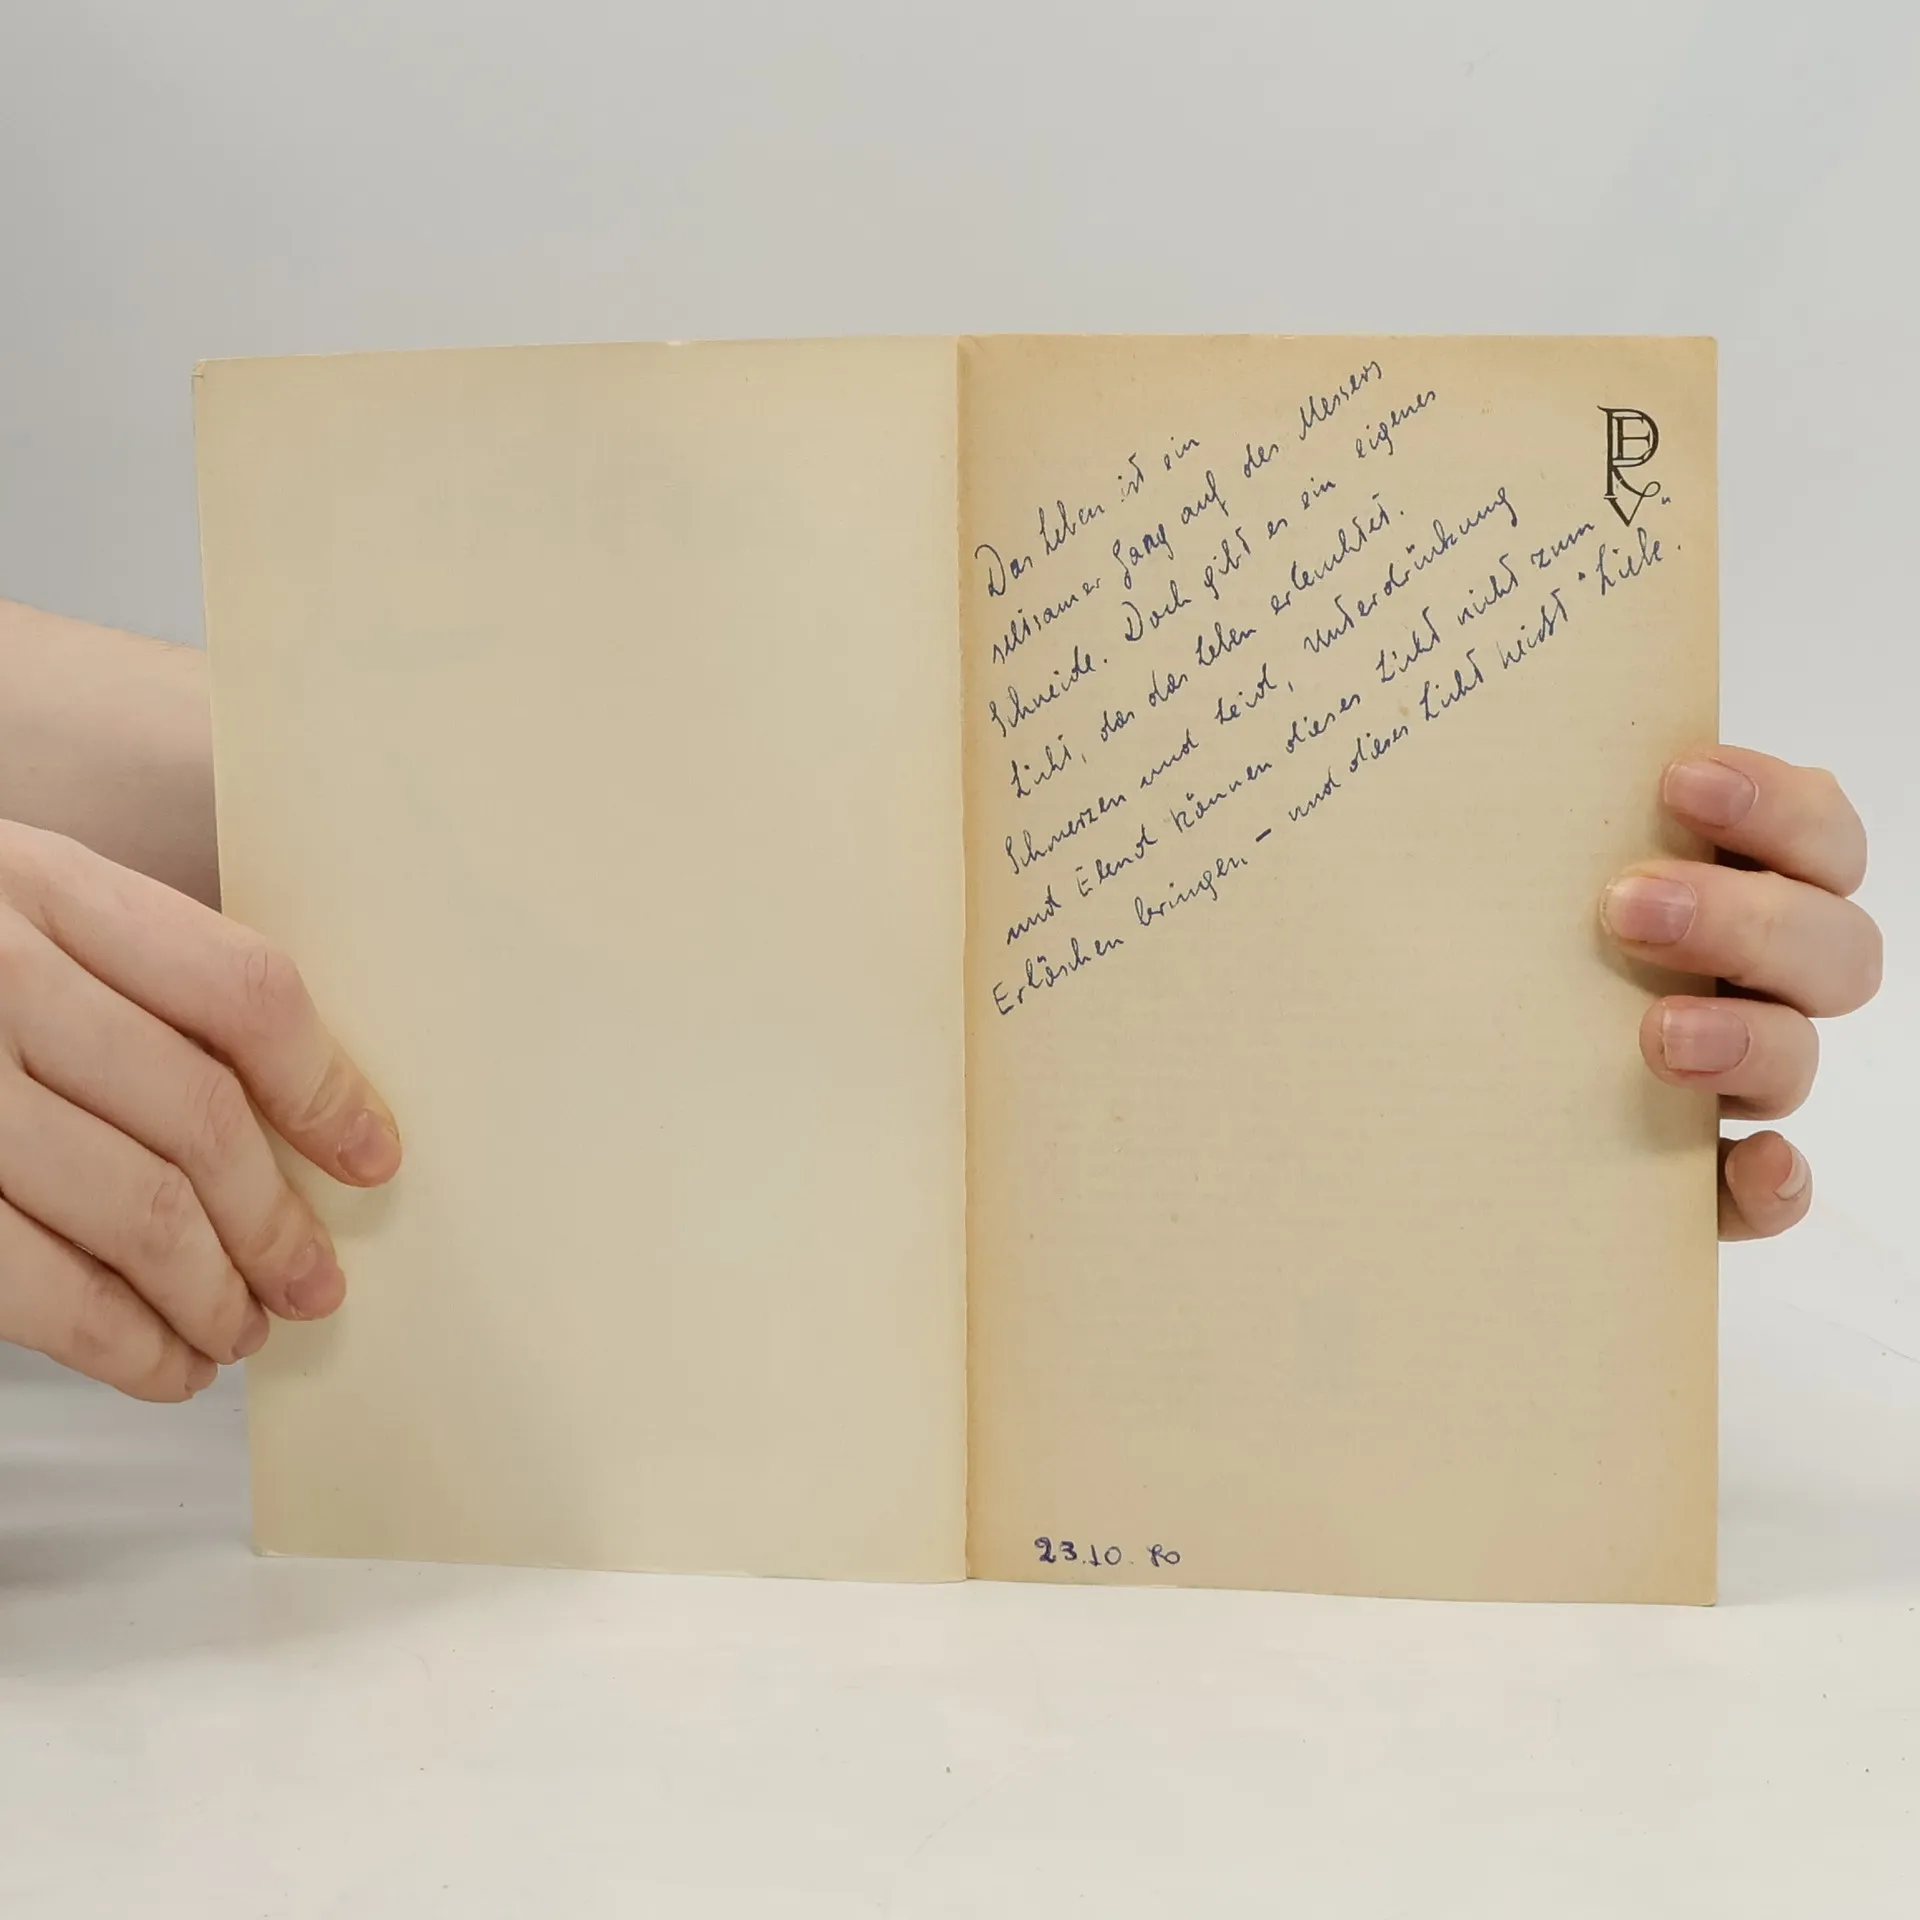 Das Leben ist ein
seltsamer Gang auf des Messers
Schneide. Doch gibt es ein eigenes
Licht, das das Leben erleuchtet.
Schmerzen und Leid, Unterdrückung
und Elend können dieses Licht nicht zum
Erlöschen bringen – und dieses Licht heißt "Liebe".
PERV
23.10.80